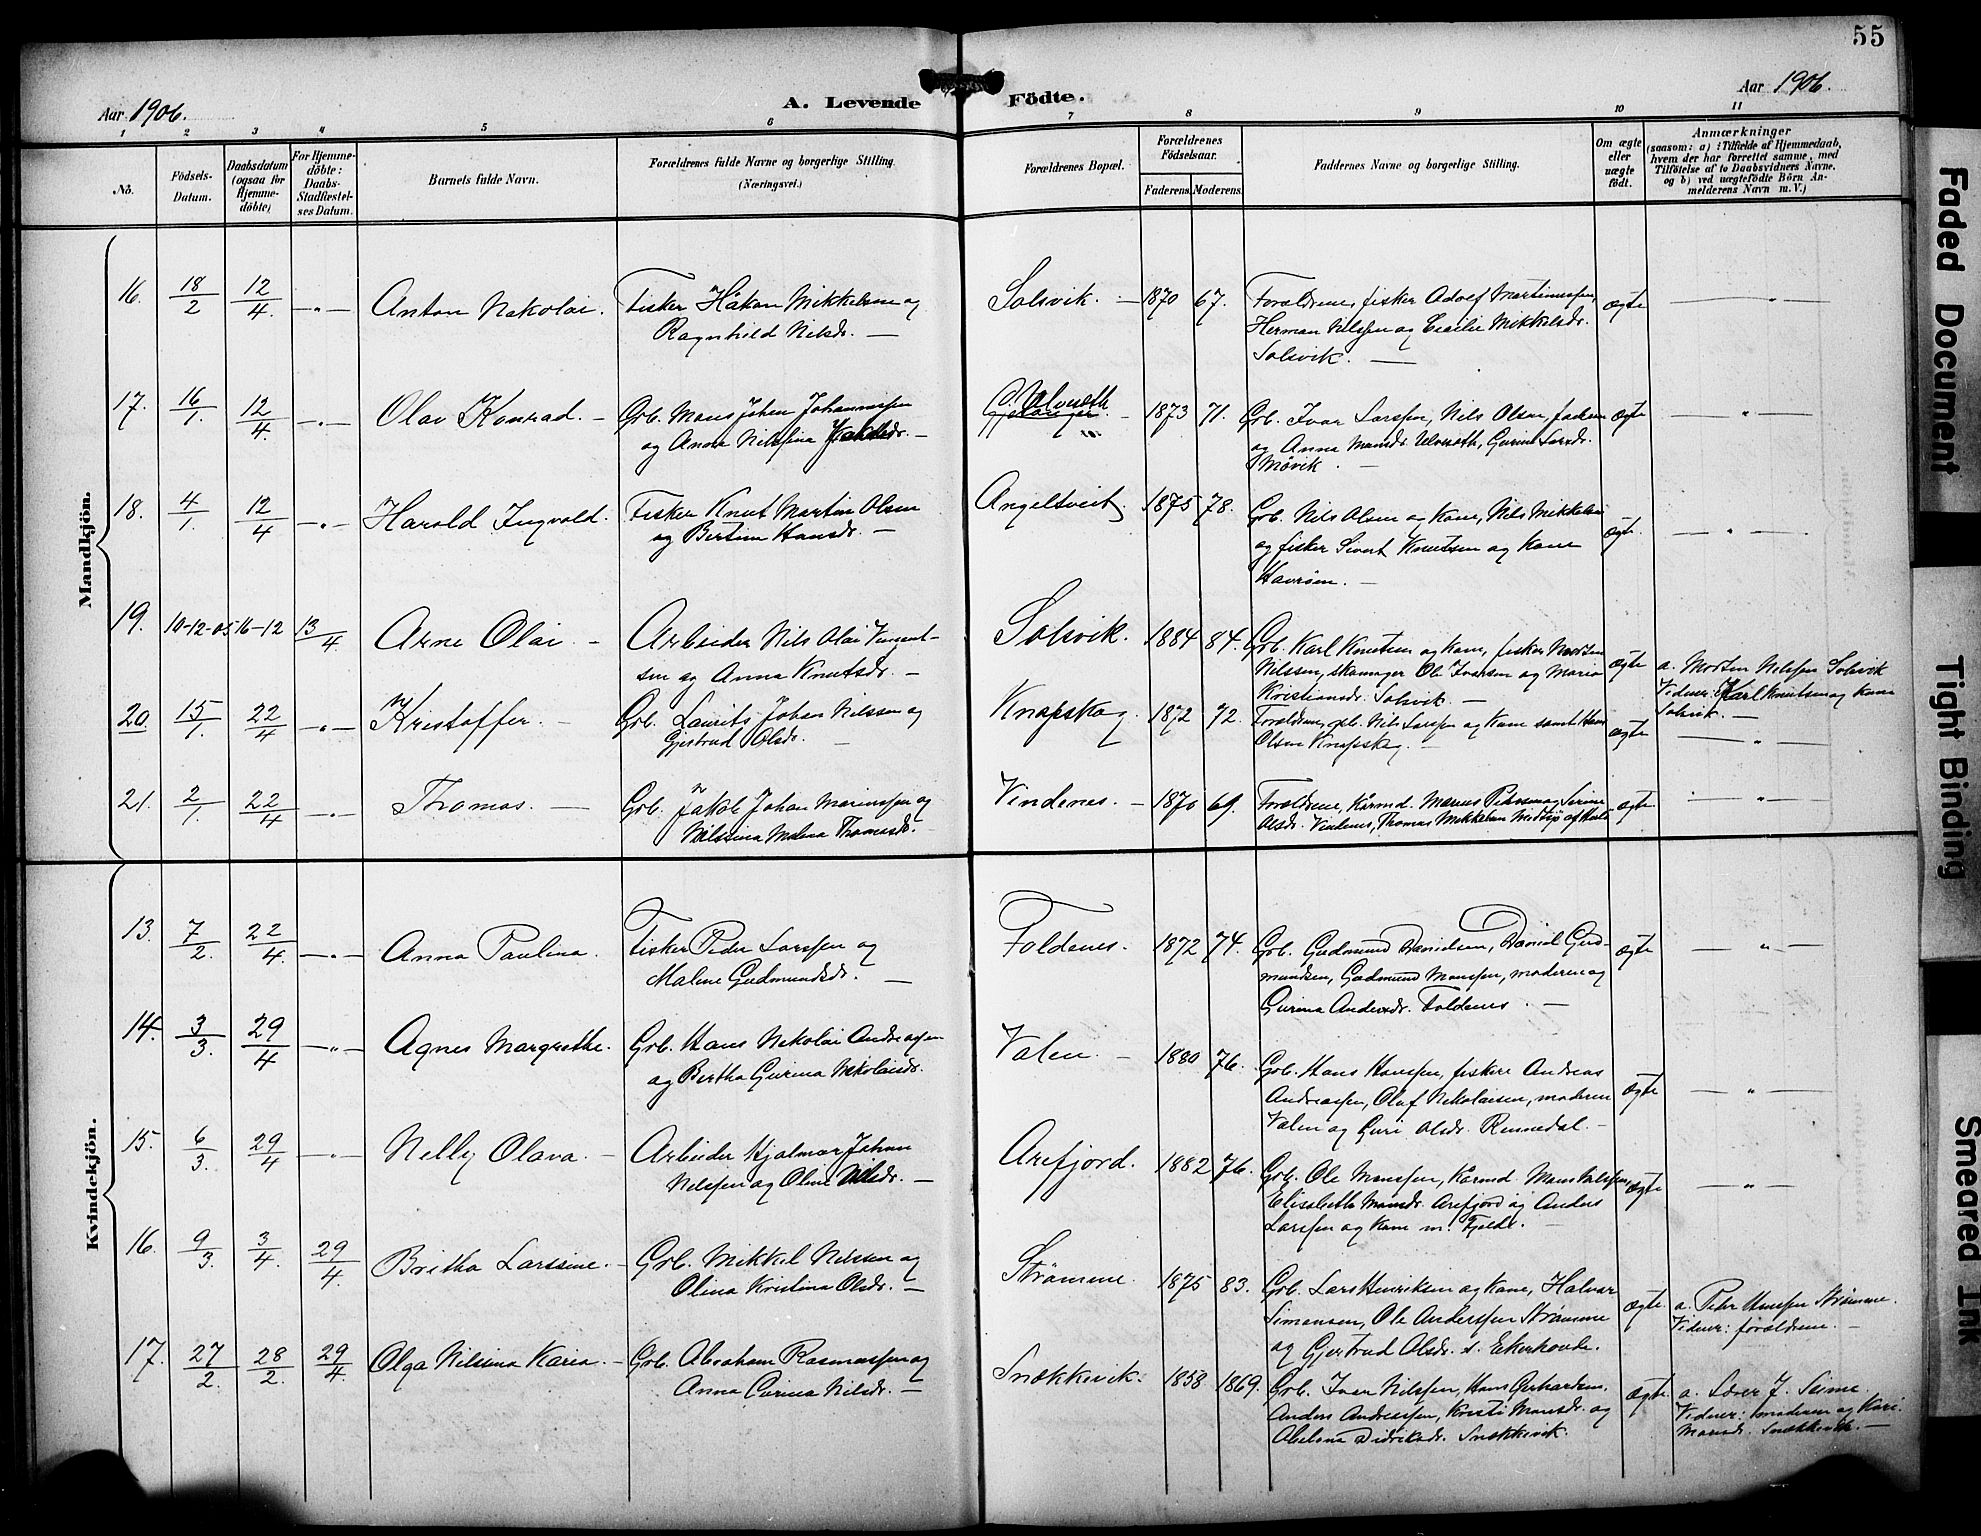 55
Aar 1906.
A. Levende Födte.
Aar 1906.
1 2 3 4 5 6 7 8 9 10 11
No.
Födsels-Datum.
Daabsdatum (ogsaa for Hjemme-döbte)
For Hjemme-döbte: Daabs-Stadfæstel-ses Datum.
Barnets fulde Navn.
Forældrenes fulde Navne og borgerlige Stilling.
(Næringsvei.)
Forældrenes Bopæl.
Forældrenes Födselsaar.
Faderens. Moderens.
Faddernes Navne og borgerlige Stilling.
Om ægte eller uægte födt.
Anmærkninger
(saasom: a) i Tilfælde af Hjemmedaab,
hvem der har forrettet samme, med
Tilföielse af to Daabsvidners Navne,
og b) ved uægtefödte Börn An-
melderens Navn m. V.)
Mandkjön.
16. 18/2 12/4 -„- Anton Nikolai. Fisker Håkon Mikkelsen og
Ragnhild Nilsdr. —
Solsvik. — 1870 67. Forældrene, fisker Adolf Martinussen,
Herman Nilssen og Cecilie Mikkelsdr.
Solsvik. —
ægte — „ —
17. 16/1. 12/4. -„- Olav Konrad. — Grb. Mons Johan Johannessen
og Anna Nilssina —
Ulveseth. — 1873 71. Grb. Ivar Larssen, Nils Olsen,
og Anna Monsdr. Ulveseth, Gurine Larsdr.
Møvik. —
ægte — „ —
18. 4/1. 12/4 -„- Harald Ingvald. Fisker Knut Martin Olsen
og Bertine Hansdr. —
Angeltveit. 1875 78. Grb. Nils Olsen og Kone, Nils Mikkelsen
og fisker Sivert Knutsen og Kone
Havrøen. —
ægte. — „ —
19. 10-12-05 16-12 13/4. Arne Olai — Arbeider Nils Olai Vincent-
sen og Anna Knutsdr. —
Solsvik. 1884 84. Grb. Karl Knutsen og Kone, fisker Morten
Nilssen, skomager Ole Ivarsen og Maria
Kristiansdr. Solsvik. —
ægte a. Morten Nilssen Solsvik
Vidner: Karl Knutsen og Kone
Solsvik. —
20. 15/1. 22/4 -„- Kristoffer. — Grb. Laurits Johan Nilssen og
Gjertrud Olsdr. —
Knapskog. 1872 72. Forældrene, grb. Nils Larssen og Kone samt Hans
Olsen Knapskog. —
ægte — „ —
21. 2/1. 22/4 -„- Thomas. — Grb. Jakob Johan Marinussen og
Nilssina Malena Thomasdr. —
Vindenes. — 1870 69. Forældrene, Kårmd. Marinus Pedersen og Serine
Olsdr. Vindenes, Thomas Mikkelsen
ægte — „ —
Kvindekjön.
13. 7/2. 22/4. -„- Anna Paulina. Fisker Peder Larssen og
Malene Gudmundsdr. —
Foldenes. 1872 74. Grb. Gudmund Davidsen, Daniel Gud-
mundsen, Gudmund Monssen, moderen og
Gurina Andersdr. Foldenes. —
ægte — „ —
14. 3/3. 29/4 -„- Agnes Margrethe. Grb. Hans Nikolai Andreassen
og Bertha Gurina Nikolaisdr.
Valen. — 1880 76. Grb. Hans Hanssen, fiskere Andreas
Andreassen, Olaf Nikolaisen, moderen
Valen og Guri Olsdr. Rennedal. —
ægte — „ —
15. 6/3. 29/4 -„- Nelly Olava. — Arbeider Hjalmar Johan
Nilssen og Oline Nilsdr. —
Arefjord. 1882 76. Grb. Ole Monssen, Kårmd. Mons Nilssen,
Elisabeth Monsdr. Arefjord og Anders
Larssen og Kone m. Fjeld. —
ægte — „ —
16. 9/3. 3/4. 29/4. Britha Larssine. — Grb. Mikkel Nilssen og
Olina Kristina Olsdr. —
Strømme. 1875 83. Grb. Lars Henriksen og Kone, Halvar
Simonsen, Ole Anderssen Strømme
og Gjertrud Olsdr. s. Ekerhovde.
ægte. a. Peder Hanssen Strømme.
Vidner: forældrene. —
17. 27/2. 28/2. 29/4. Olga Nilsina Karia. — Grb. Abraham Rasmussen og
Anna Gurina Nilsdr. —
Snekkevik. 1858 1869. Grb. Ivar Nilssen, Hans Gerhardsen,
Anders Andreassen, Kristi Monsdr. og
Abelona Didriksdr. Snekkevik.
ægte a. Lærer J. Seime.
Vidner: moderen og Kari
Monsdr. Snekkevik. —
Faded Document
Tight Binding
Smeared Ink